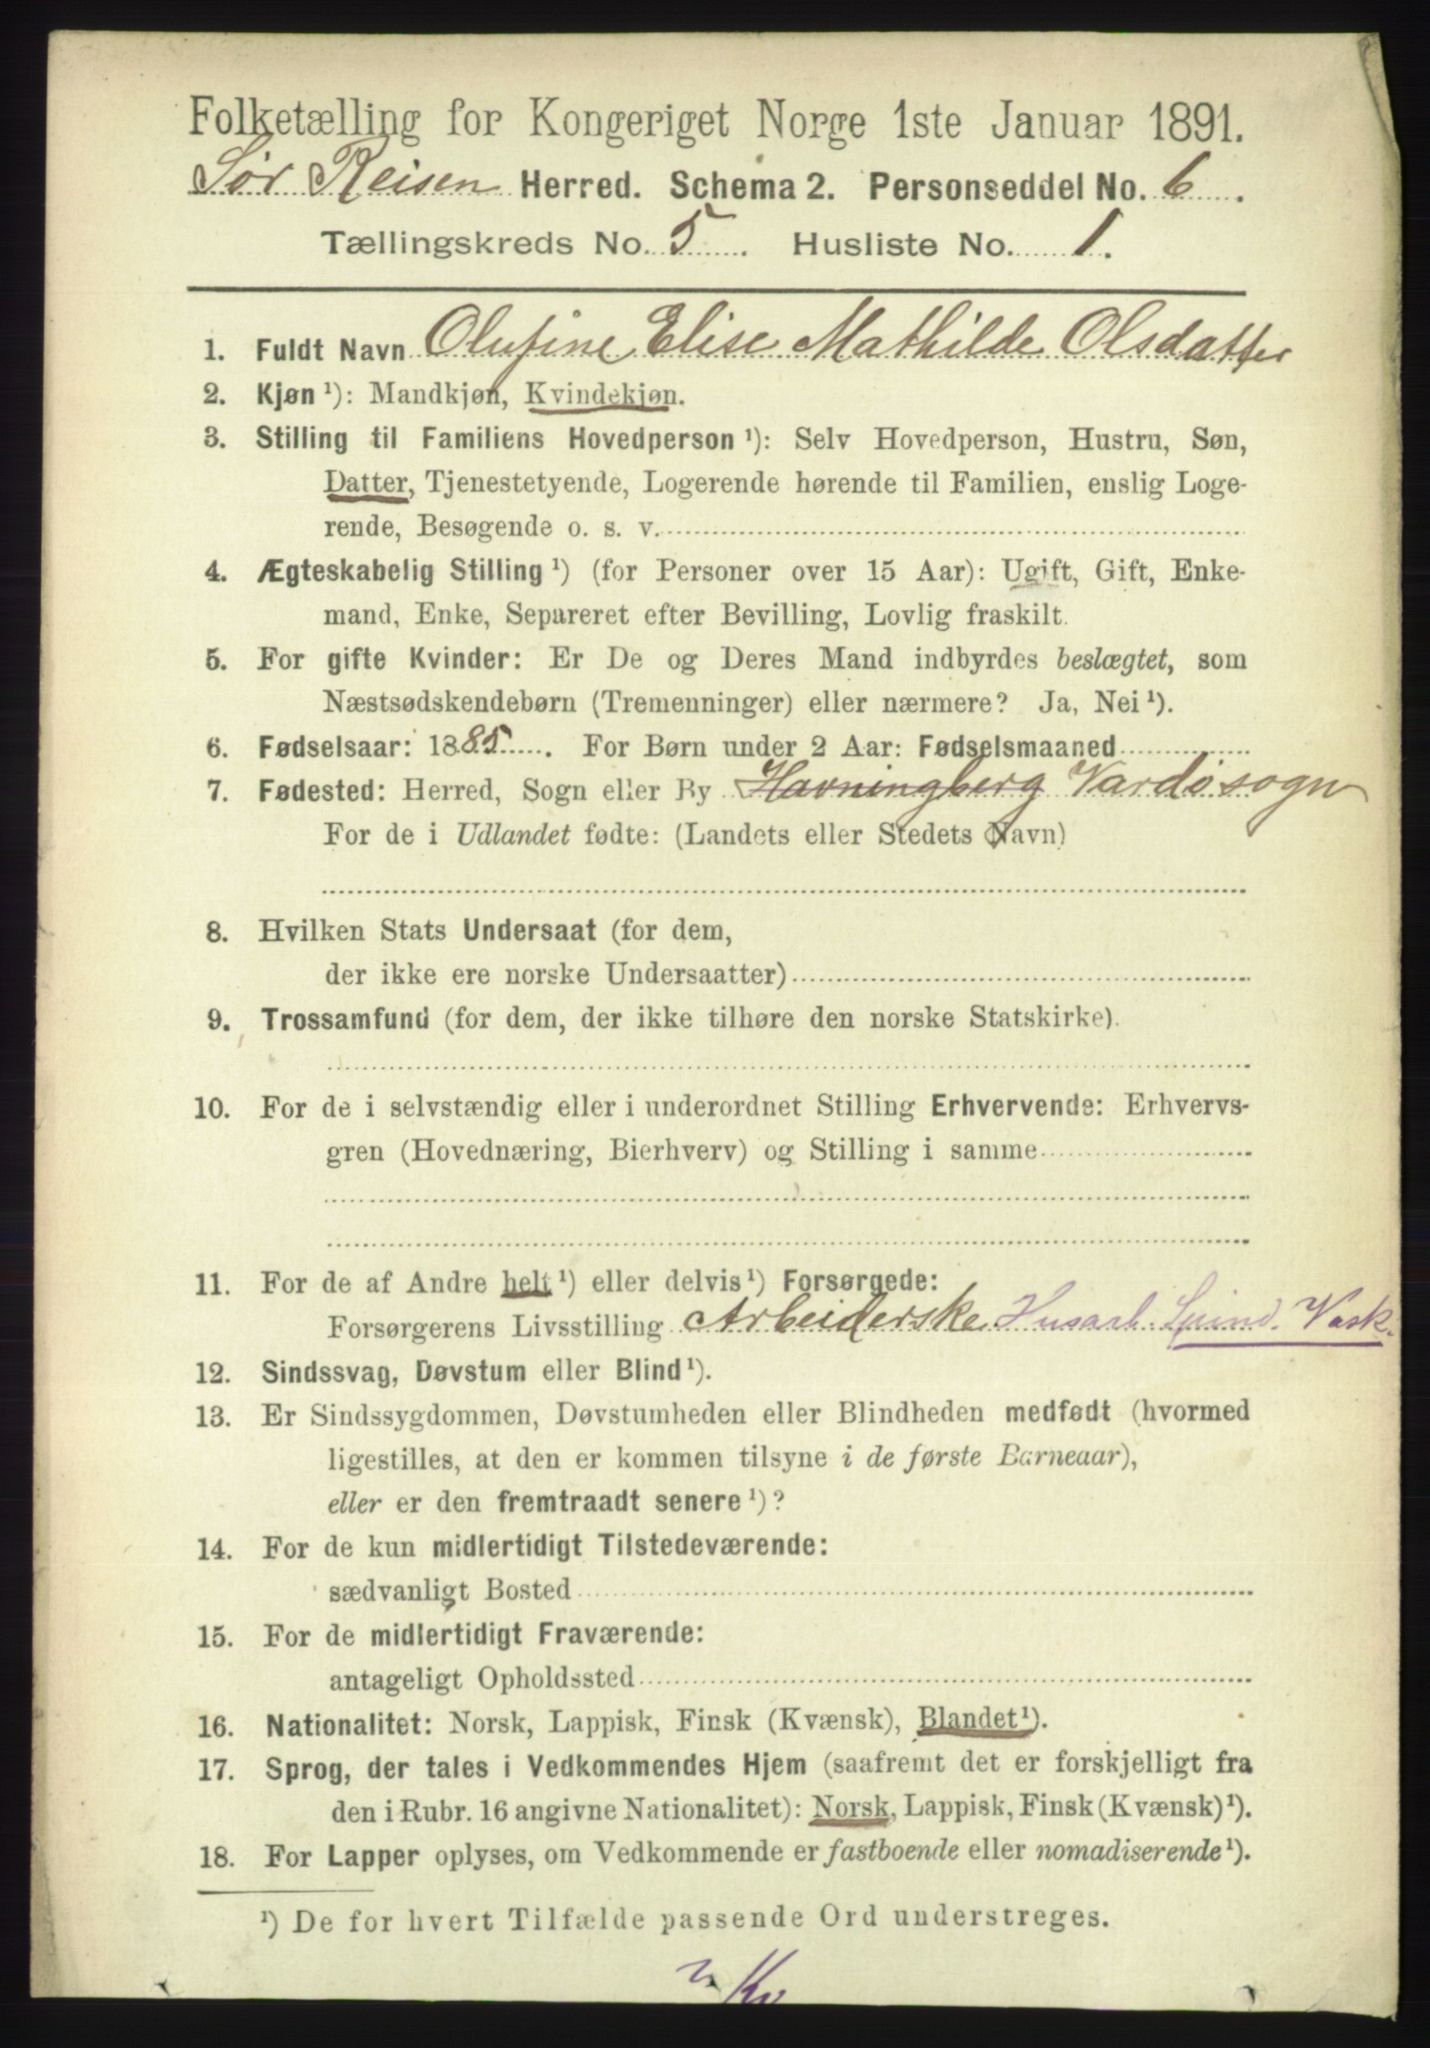 Folketælling for Kongeriget Norge 1ste Januar 1891.
Sør Reisen Herred. Schema 2. Personseddel No. 6.
Tællingskreds No. 5. Husliste No. 1.
1. Fuldt Navn Olufine Elise Mathilde Olsdatter
2. Kjøn ¹): Mandkjøn, Kvindekjøn.
3. Stilling til Familiens Hovedperson ¹): Selv Hovedperson, Hustru, Søn,
Datter, Tjenestetyende, Logerende hørende til Familien, enslig Loge-
rende, Besøgende o. s. v.
4. Ægteskabelig Stilling ¹) (for Personer over 15 Aar): Ugift, Gift, Enke-
mand, Enke, Separeret efter Bevilling, Lovlig fraskilt.
5. For gifte Kvinder: Er De og Deres Mand indbyrdes beslægtet, som
Næstsødskendebørn (Tremenninger) eller nærmere? Ja, Nei ¹).
6. Fødselsaar: 1885. For Børn under 2 Aar: Fødselsmaaned
7. Fødested: Herred, Sogn eller By Havningberg Vardøsogn
For de i Udlandet fødte: (Landets eller Stedets Navn)
8. Hvilken Stats Undersaat (for dem,
der ikke ere norske Undersaatter)
9. Trossamfund (for dem, der ikke tilhøre den norske Statskirke).
10. For de i selvstændig eller i underordnet Stilling Erhvervende: Erhvervs-
gren (Hovednæring, Bierhverv) og Stilling i samme
11. For de af Andre helt ¹) eller delvis ¹) Forsørgede:
Forsørgerens Livsstilling Arbeiderske Husarb. Spind. Vask.
12. Sindssvag, Døvstum eller Blind ¹).
13. Er Sindssygdommen, Døvstumheden eller Blindheden medfødt (hvormed
ligestilles, at den er kommen tilsyne i de første Barneaar),
eller er den fremtraadt senere ¹)?
14. For de kun midlertidigt Tilstedeværende:
sædvanligt Bosted
15. For de midlertidigt Fraværende:
antageligt Opholdssted
16. Nationalitet: Norsk, Lappisk, Finsk (Kvænsk), Blandet ¹).
17. Sprog, der tales i Vedkommendes Hjem (saafremt det er forskjelligt fra
den i Rubr. 16 angivne Nationalitet): Norsk, Lappisk, Finsk (Kvænsk) ¹).
18. For Lapper oplyses, om Vedkommende er fastboende eller nomadiserende ¹).
¹) De for hvert Tilfælde passende Ord understreges.
Kv